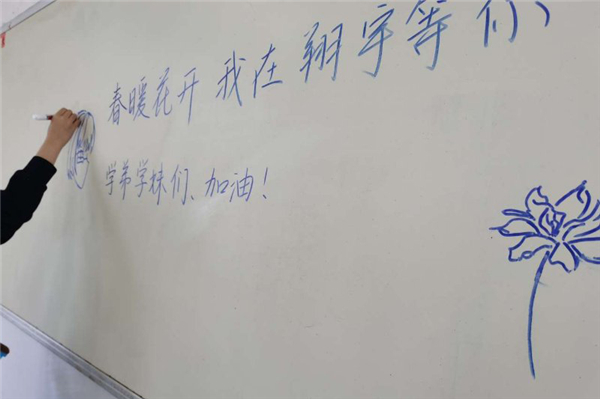 春暖花开 我在翔宇等你
学弟学妹们、加油!